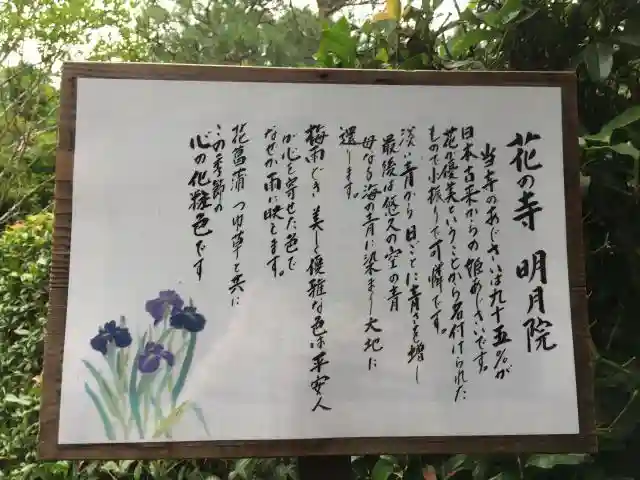 花の寺 明月院
当寺のあじさいは九十五%が
日本古来からの姫あじさいです。
花が優美ということから名付けられた
もので小振りで可憐です。
淡い青から日ごとに青さを増し
最後は悠久の空の青
母なる海の青に染まり大地に
還します。
梅雨どき 美しく優雅な色は平安人
が心を寄せた色で
なぜか雨に映えます。
花菖蒲 つゆ草と共に
この季節の
心の化粧色です